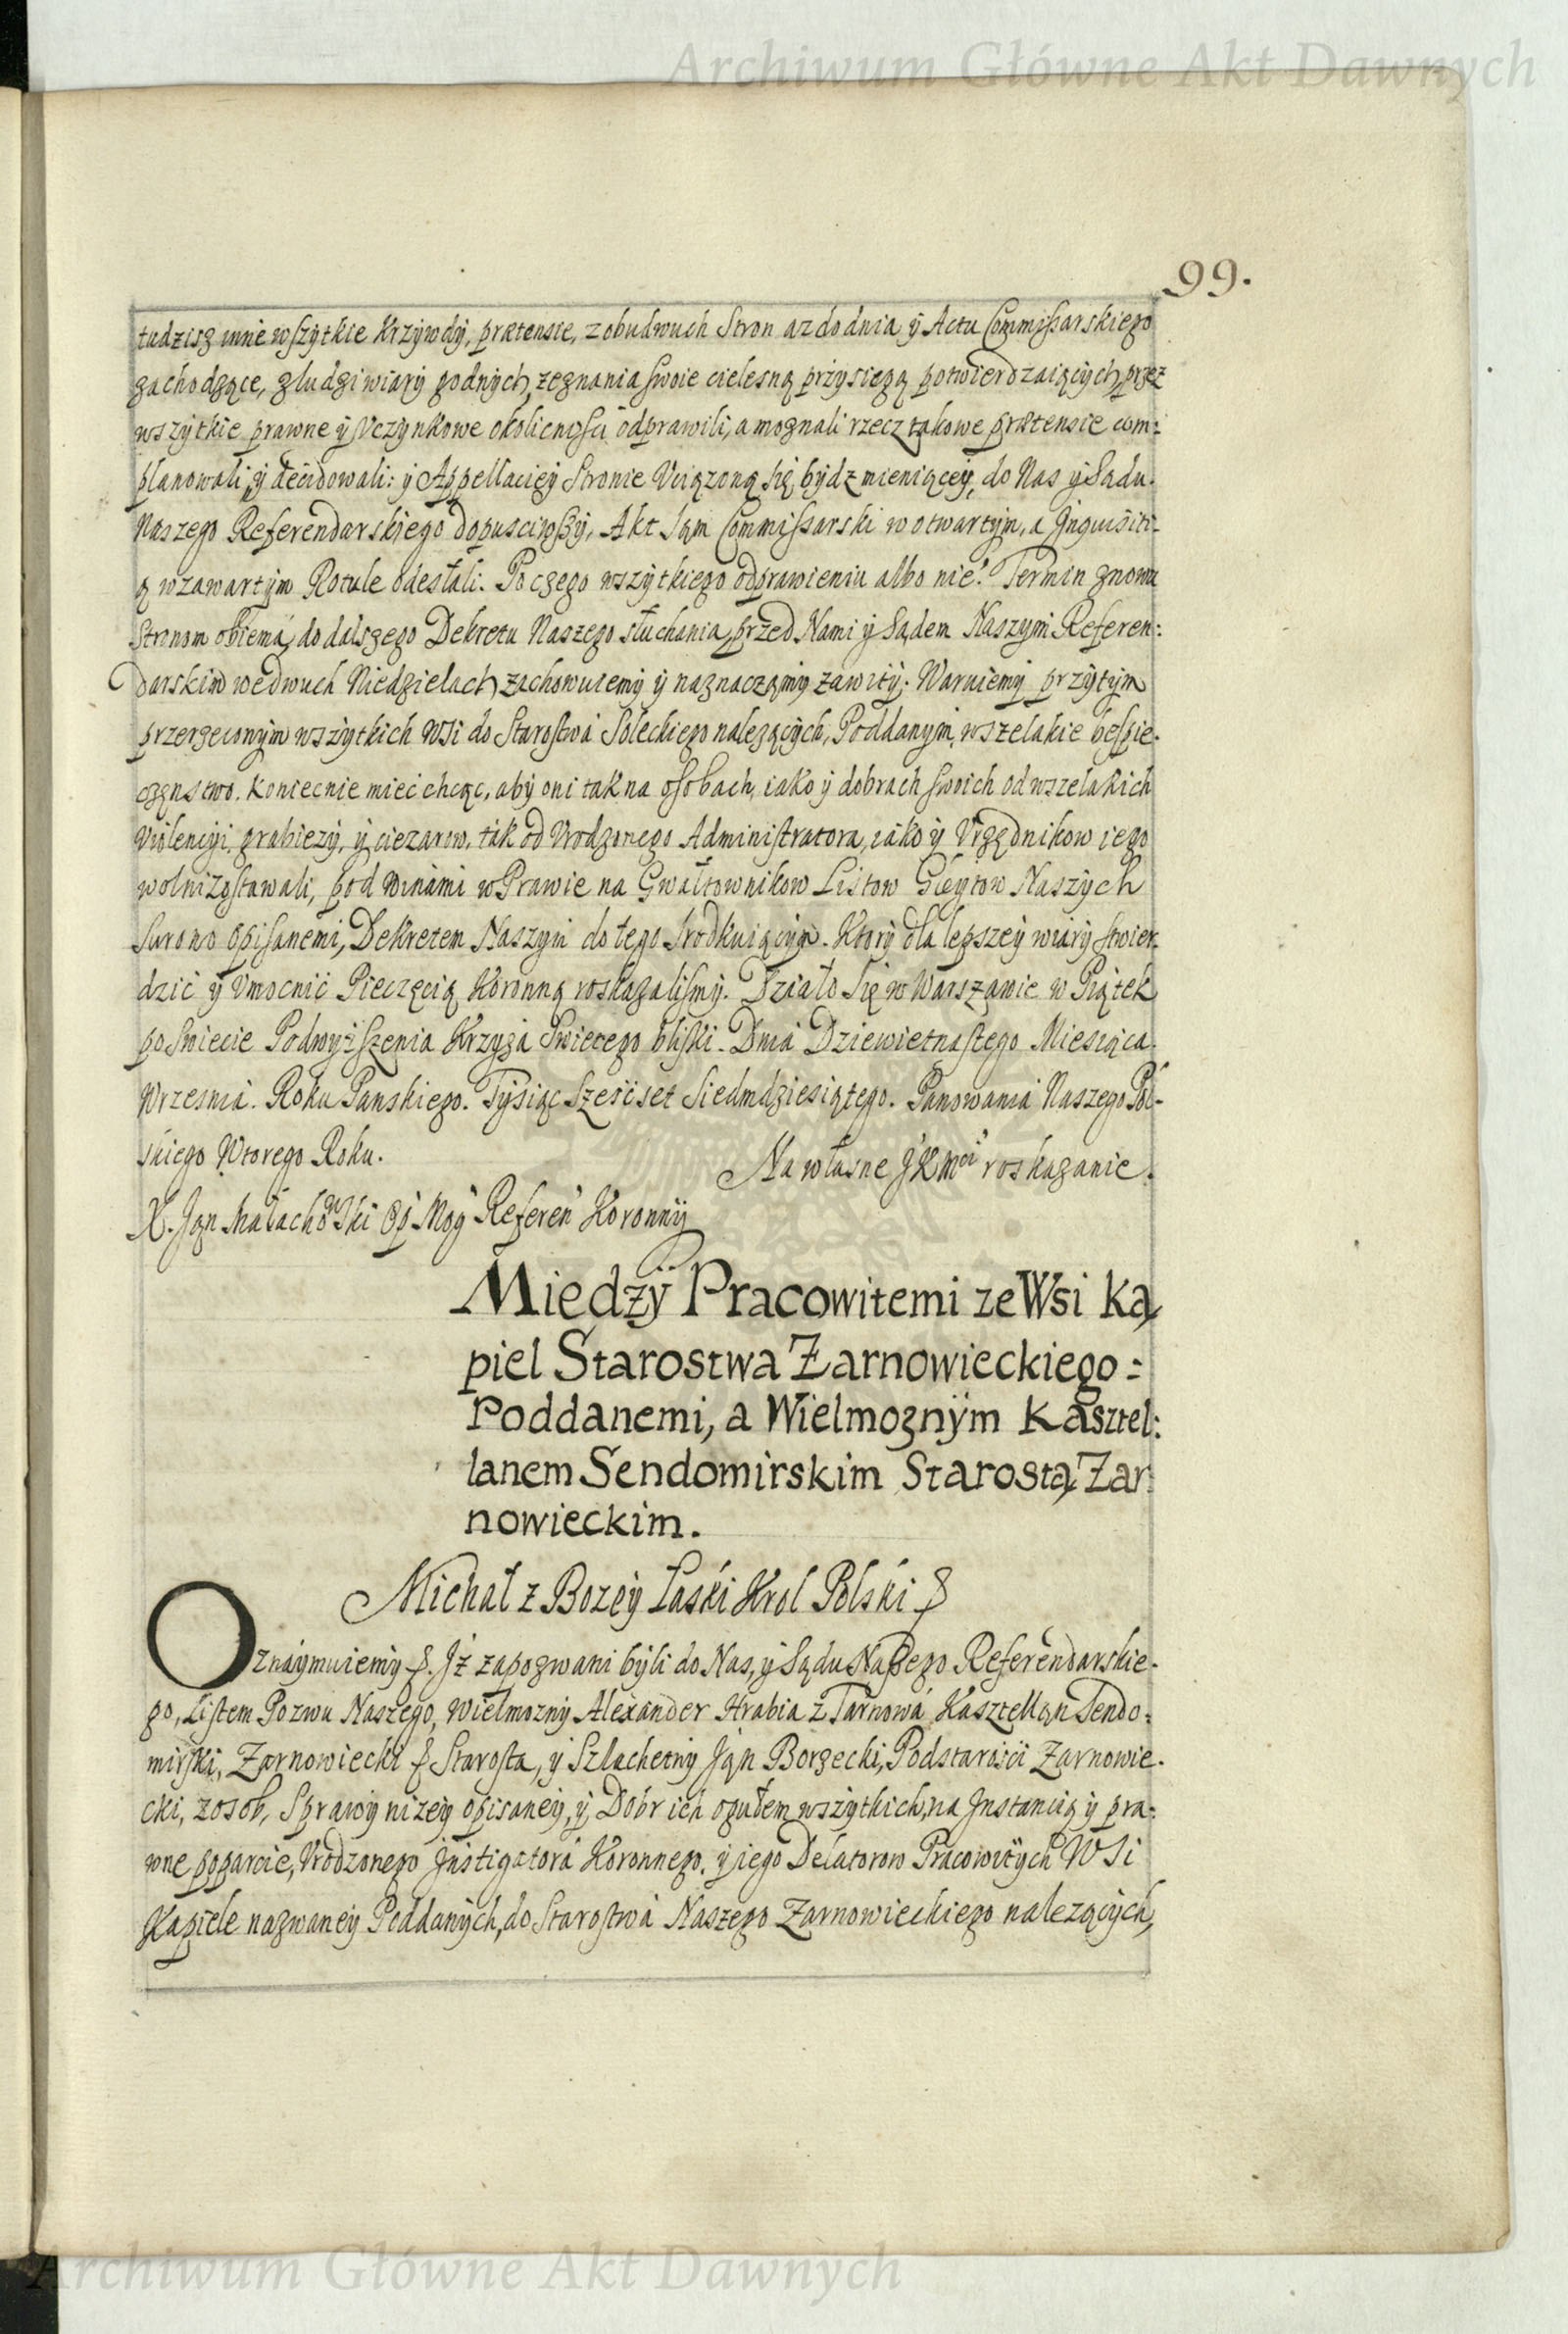 Archiwum Główne Akt Dawnych
99.
tudzisz inne wszytkie Krzywdy, prætensie, z obudwuch Stron az do dnia y Actu Commissarskiego
zachodzące, z ludzi wiary godnych, zeznania swoie cielesną przysięgą potwierdzaiących, przez
wszytkie prawne y Uczynkowe okolicnosci odprawili, a moznali rzecz takowe prætensie com:
planowali, y decidowali: y Appellaciey Stronie Uciązoną się bydz mieniącey, do Nas y Sądu
Naszego Referendarskiego dopusciwszy, Akt sąm Commissarski w otwartym, a Inquisiti:
ą w zawartym Rotule odesłali. Po czego wszytkiego odprawieniu albo nie: Termin znowu
Stronom obiema, do dalszego Dekretu Naszego słuchania, przed Nami y Sądem Naszym Referen:
darskim we dwuch Niedzielach zachowuiemy y naznaczamy zawity. Waruiemy przytym
przerzeconym wszytkich Wsi do Starostwa Soleckiego nalezących, Poddanym, wszelakie bespie-
czenstwo. Koniecnie mieć chcąc, aby oni tak na osobach, iako y dobrach swoich od wszelakich
Violenciyi, grabiezy, y ciezarow, tak od Urodzonego Administratora, iako y Urzędnikow iego
wolni zostawali, pod winami w Prawie na Gwałtownikow Listow Gleytow Naszych
surowo opisanemi, Dekretem Naszym do tego srodkuiącym. Ktory dla lepszey wiary stwier-
dzić y Umocnić Pieczęcią Koronną roskazalismy. Działo się w Warszawie w Piątek
po Swiecie Podwyzszenia Krzyza Swietego bliski. Dnia Dziewietnastego Miesiąca
Wrzesnia. Roku Panskiego. Tysiąc Szescset Siedmdziesiątego. Panowania Naszego Pol-
skiego Wtorego Roku.
Na własne J K Mci roskazanie.
X. Jąn Małachowski Op. Mog. Referen Koronny
Miedzy Pracowitemi ze Wsi Ką
piel Starostwa Zarnowieckiego =
Poddanemi, a Wielmoznym Kasztel:
lanem Sendomirskim Starostą Zar
nowieckim.
Michał z Bozey Łaski Krol Polski &
Oznaymuiemy &. Iż zapozwani byli do Nas, y Sądu Naszego Referendarskie-
go, Listem Pozwu Naszego, Wielmozny Alexander Hrabia z Tarnowa Kasztelląn Sendo:
mirski, Zarnowiecki & Starosta, y Szlachetny Jąn Borzecki, Podstarosci Zarnowie-
cki, z osob, Sprawy nizey opisaney, y Dobr ich ogułem wszytkich, na Instancią y pra:
wne poparcie, Urodzonego Instigatora Koronnego, y iego Delatorow Pracowitych WSi
Kąpiele nazwaney Poddanych, do Starostwa Naszego Zarnowieckiego nalezących,
Archiwum Główne Akt Dawnych